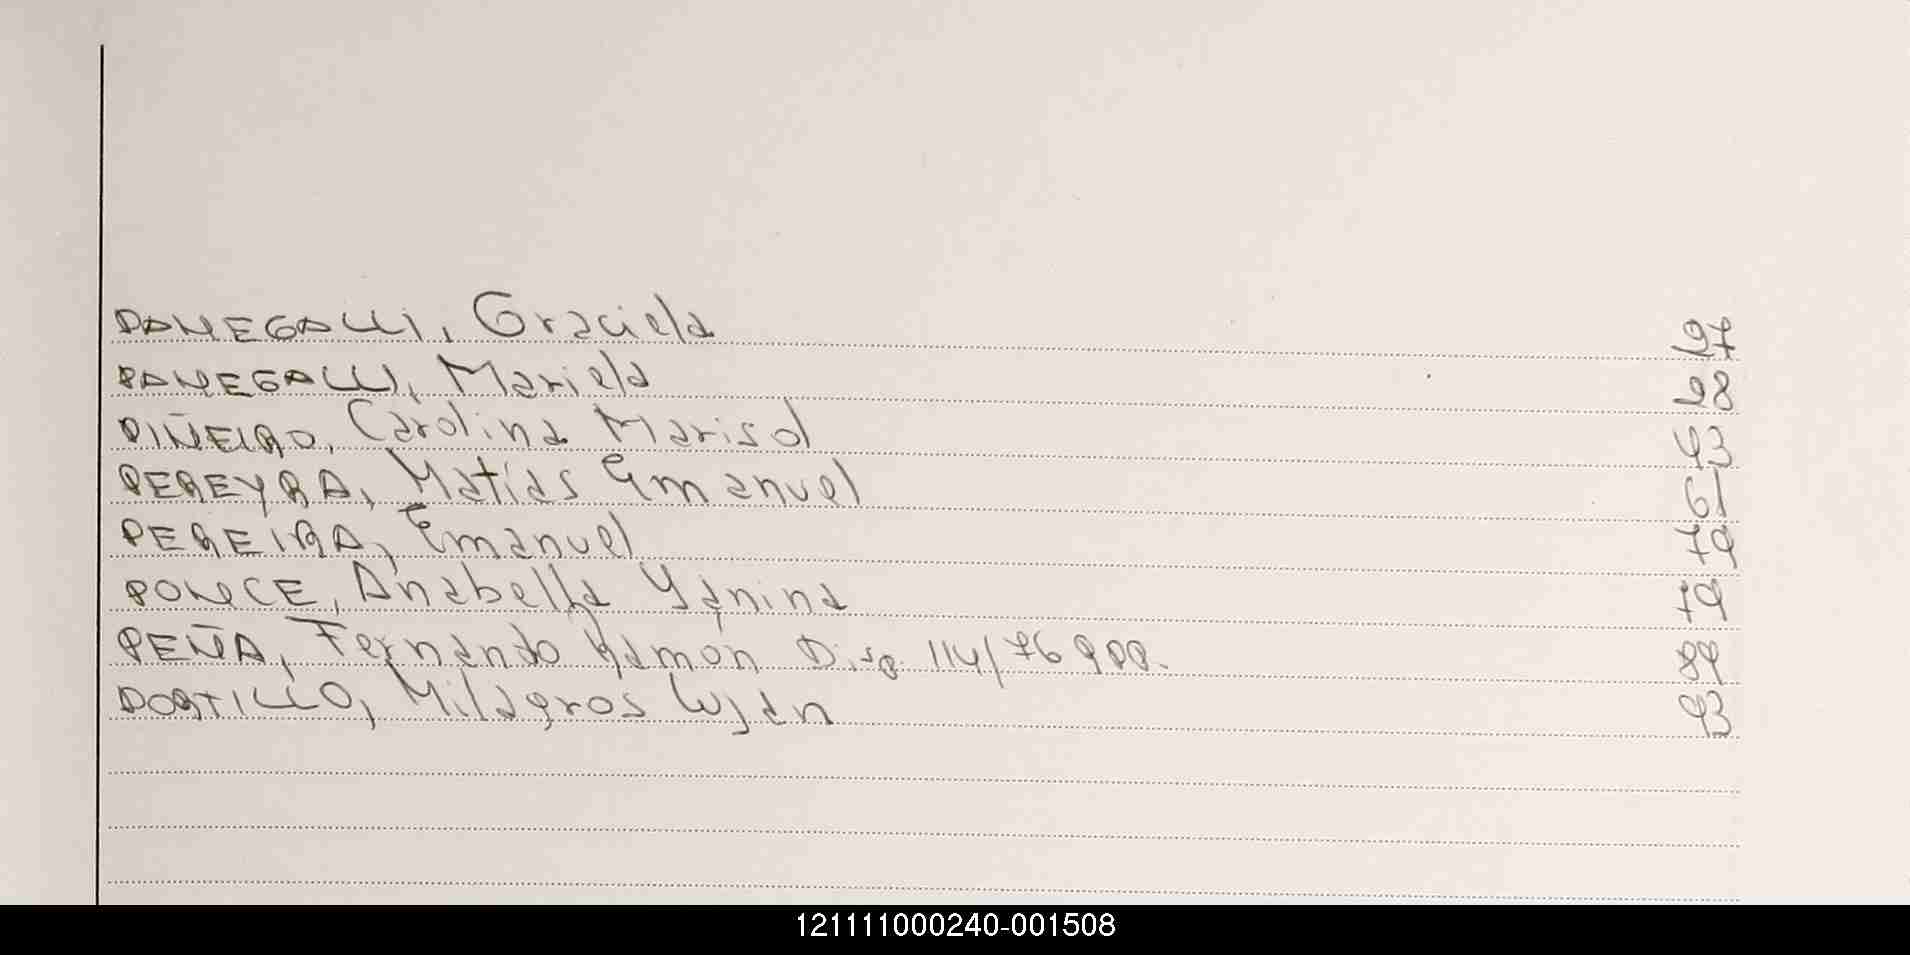 PANEGALLI, Graciela 27
PANEGALLI, Mariela 28
PIÑEIRO, Carolina Marisol 43
PEREYRA, Matías Emanuel 61
PEREIRA, Emanuel 79
PONCE, Anabella Yanina 79
PEÑA, Fernando Ramón Disp. 114/76 900. 89
PORTILLO, Milagros Luján 93
121111000240-001508